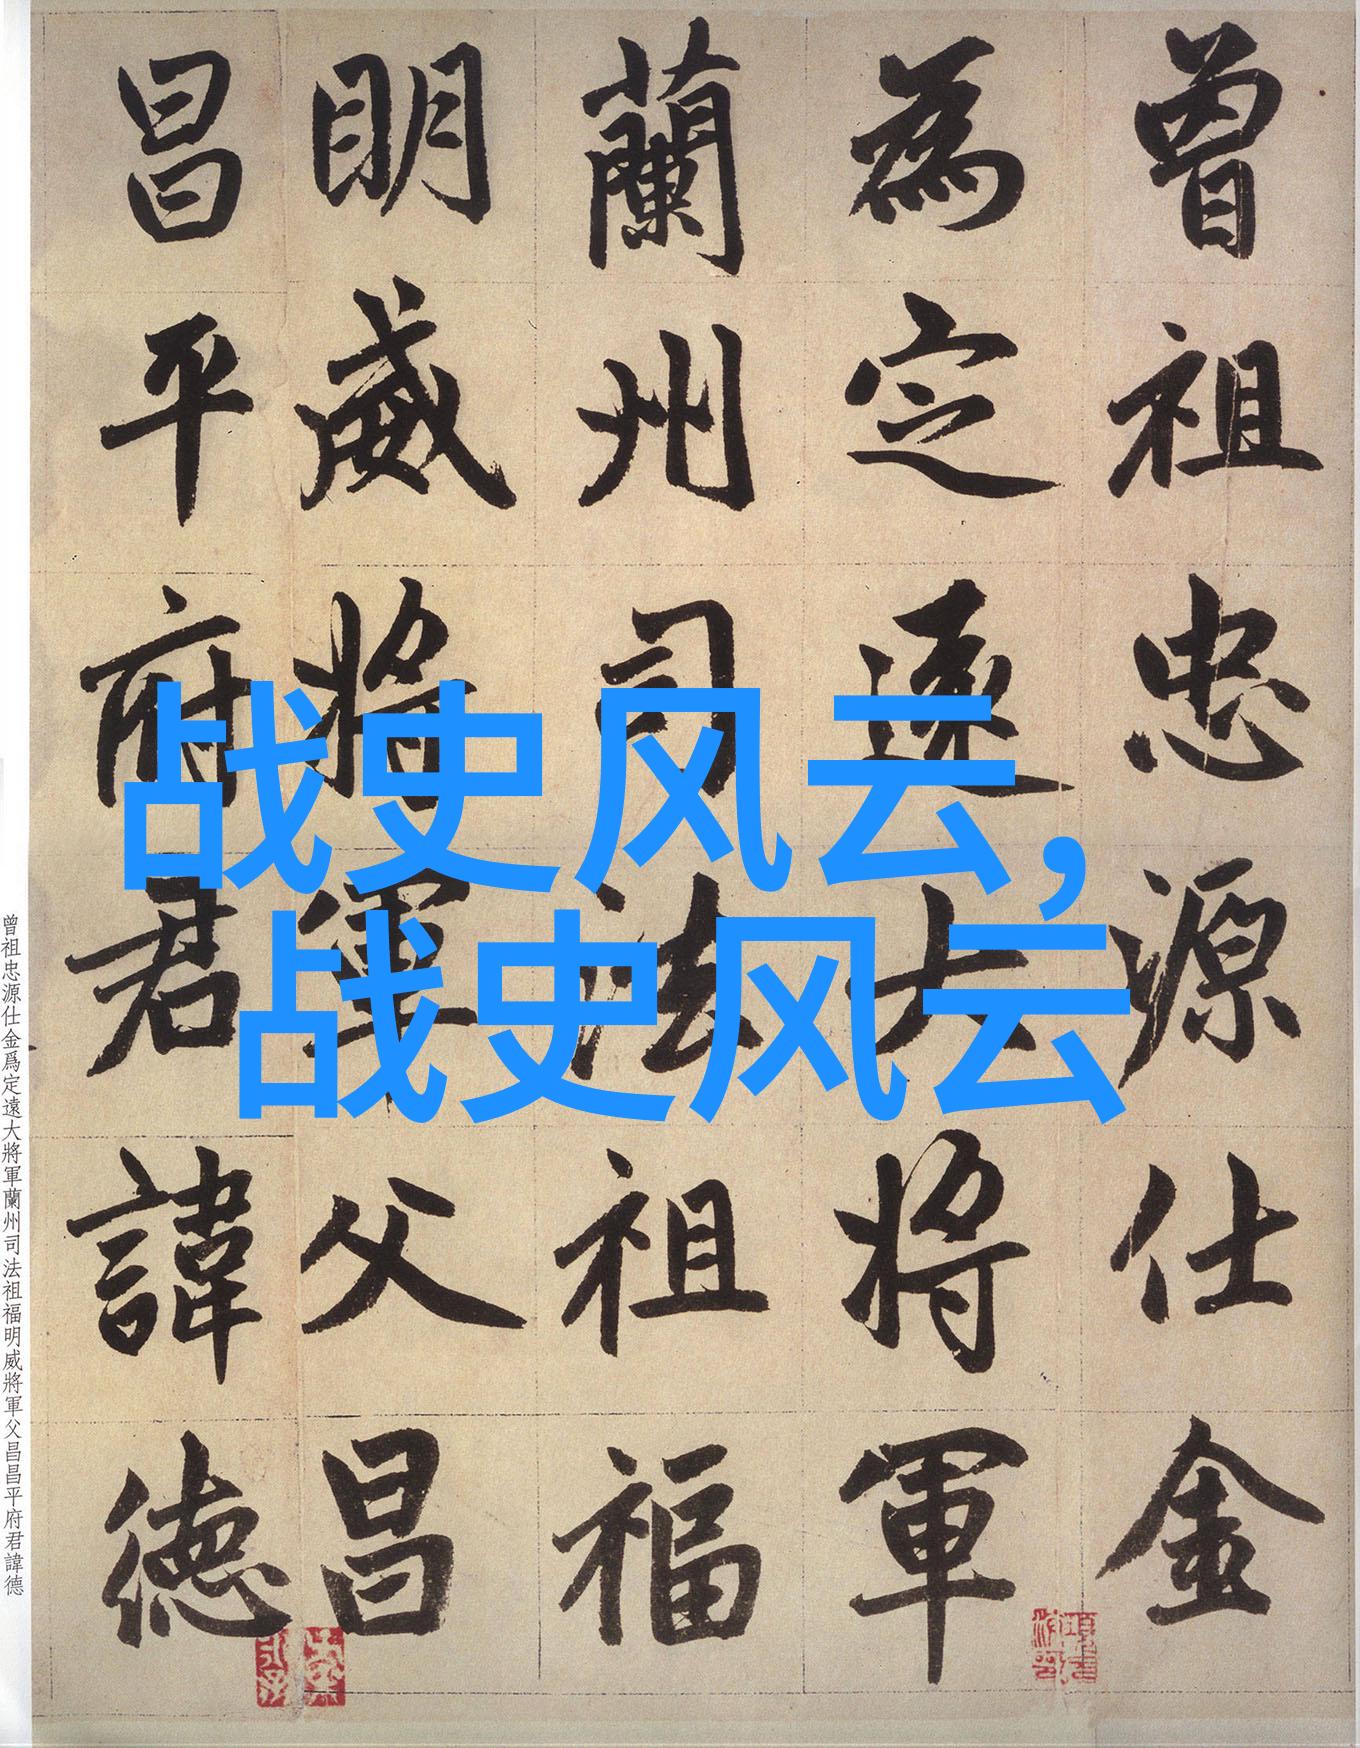 曾祖忠源仕金
為定遠大將軍
蘭州司法祖福
明威將軍父昌
昌平府君諱德
战史风云,
战史风云
曾祖忠源仕金爲定遠大將軍蘭州司法祖福明威將軍父昌昌平府君諱德